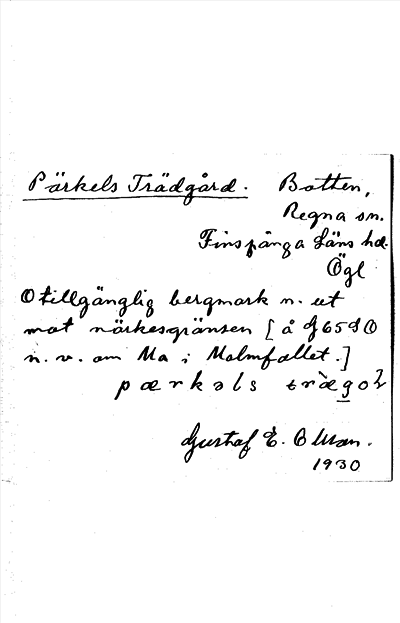 Pärkels Trädgård. Botten,
Regna sn.
Finspånga Läns hd.
Ögl
Otillgänglig bergmark n. ut
mot närkesgränsen [å J6590
n. v. om Ma i Malmfallet.]
pærkəls
Gustaf E. Olsson.
1930